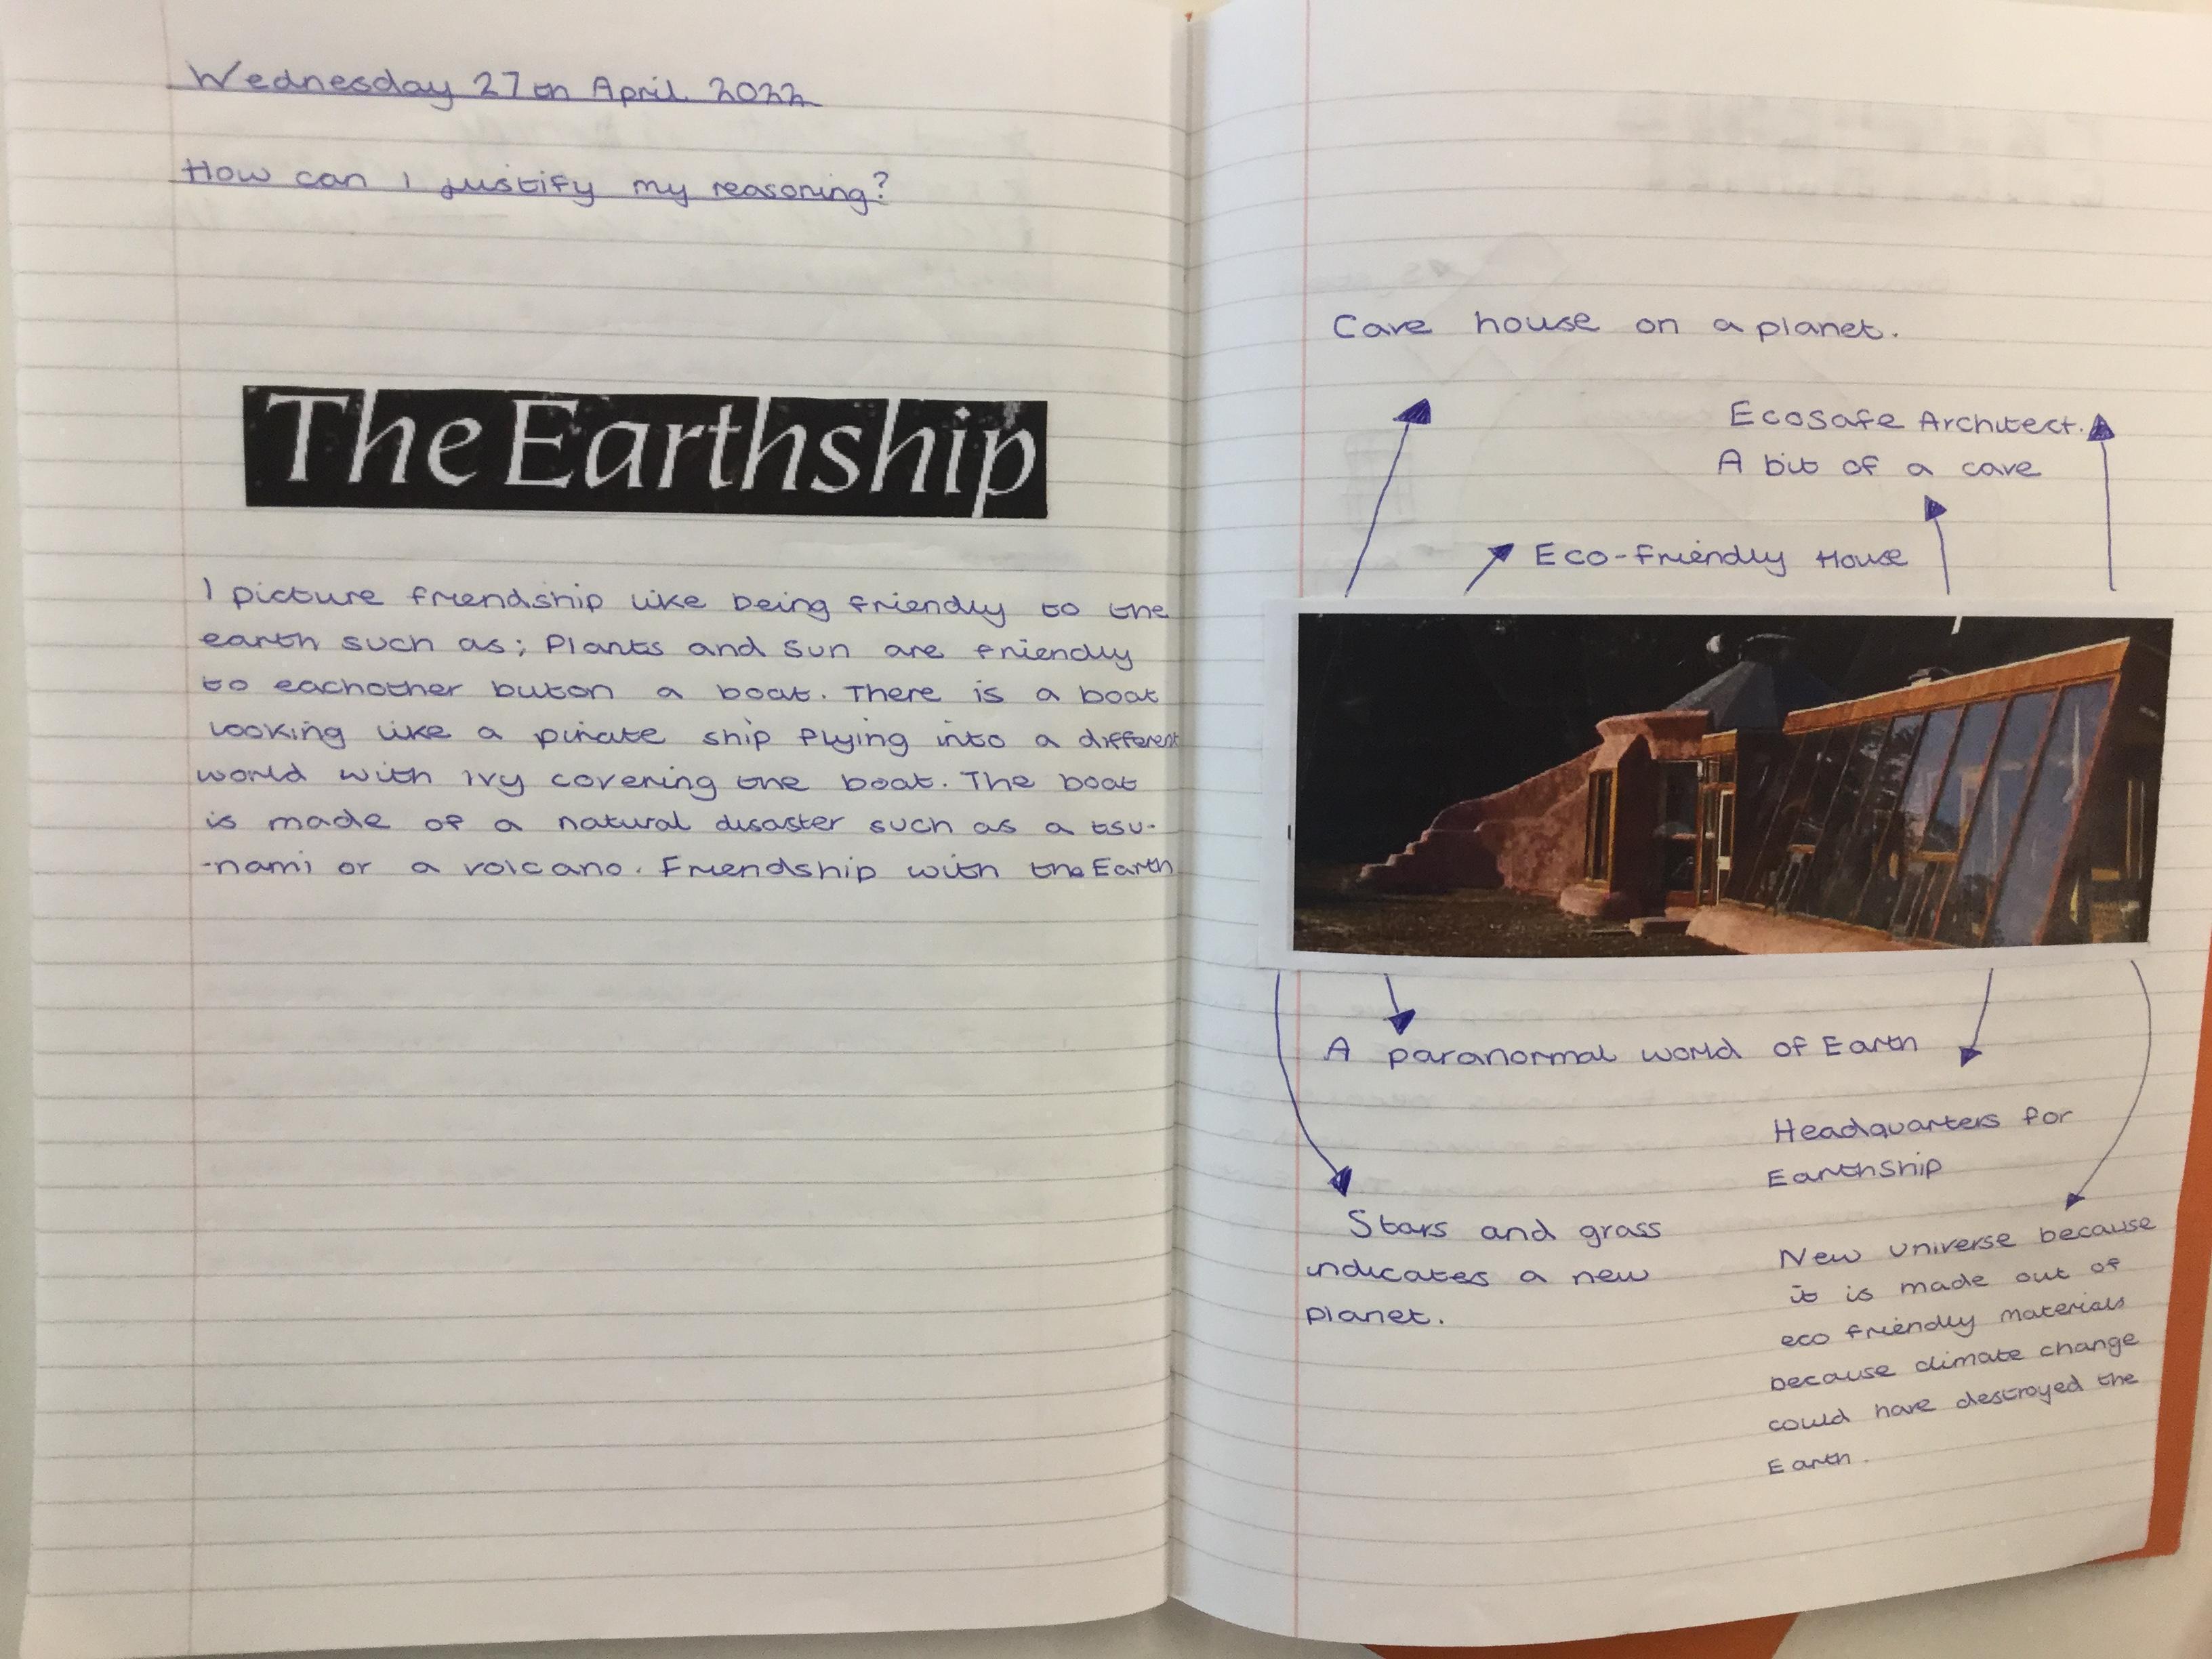 Wednesday 27th April 2022
How can I justify my reasoning?
The Earthship
I picture friendship like being friendly to the
earth such as; Plants and Sun are friendly
to eachother but on a boat. There is a boat
looking like a pirate ship flying into a different
world with Ivy covering the boat. The boat
is made of a natural disaster such as a tsu-
-nami or a volcano. Friendship with the Earth
Cave house on a planet.
EcoSafe Architect.
A bit of a cave
Eco-friendly House
A paranormal world of Earth
Headquarters for
EarthShip
Stars and grass
indicates a new
planet.
New Universe because
it is made out of
eco friendly materials
because climate change
could have destroyed the
Earth.